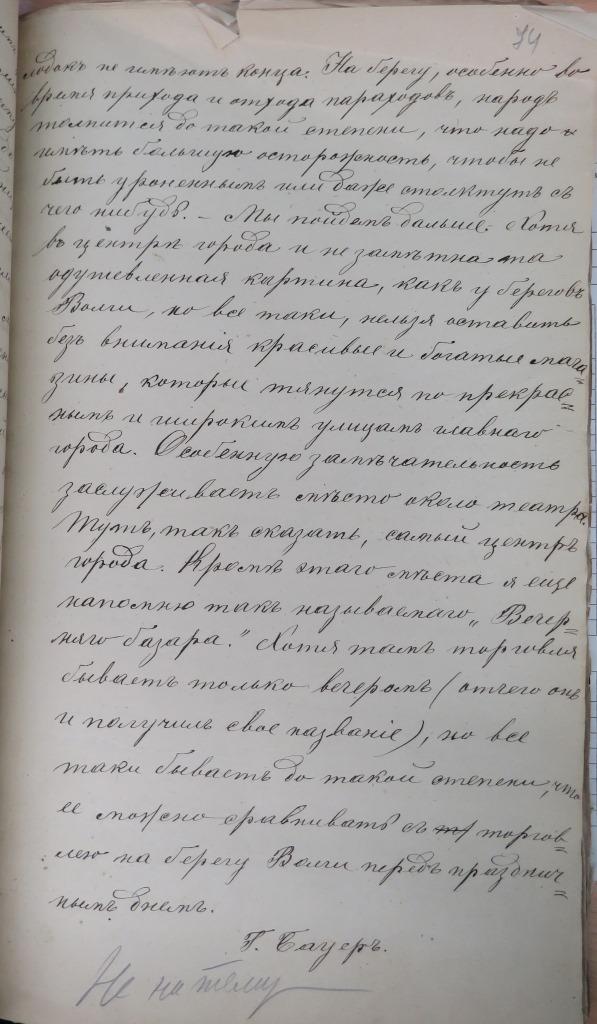 74
лодокъ не имѣютъ конца. На берегу, особенно во
время прихода и отхода параходовъ, народъ
толпится до такой степени, что надо
имѣть большую осторожность, чтобы не
быть уроненнымъ или даже столкнутъ съ
чего нибудь. – Мы пойдемъ дальше. Хотя
въ центрѣ города и не замѣтна та
одушевленная картина, какъ у береговъ
Волги, но все таки, нельзя оставить
безъ вниманія красивые и богатые мага=
зины, которые тянутся по прекрас=
нымъ и широкимъ улицамъ главнаго
города. Особенную замѣчательность
заслуживаетъ мѣсто около театра.
Тутъ, такъ сказать, самый центръ
города. Кромѣ этаго мѣста я еще
напомню такъ называемаго „Вечер=
няго базара.” Хотя тамъ торговля
бываетъ только вечеромъ (отчего онъ
и получилъ свое названіе), но все
таки бываетъ до такой степени, что
ее можно сравнивать съ торгов=
лею на берегу Волги передъ празднич=
нымъ днемъ.
Г. Бауеръ.
Не на тему